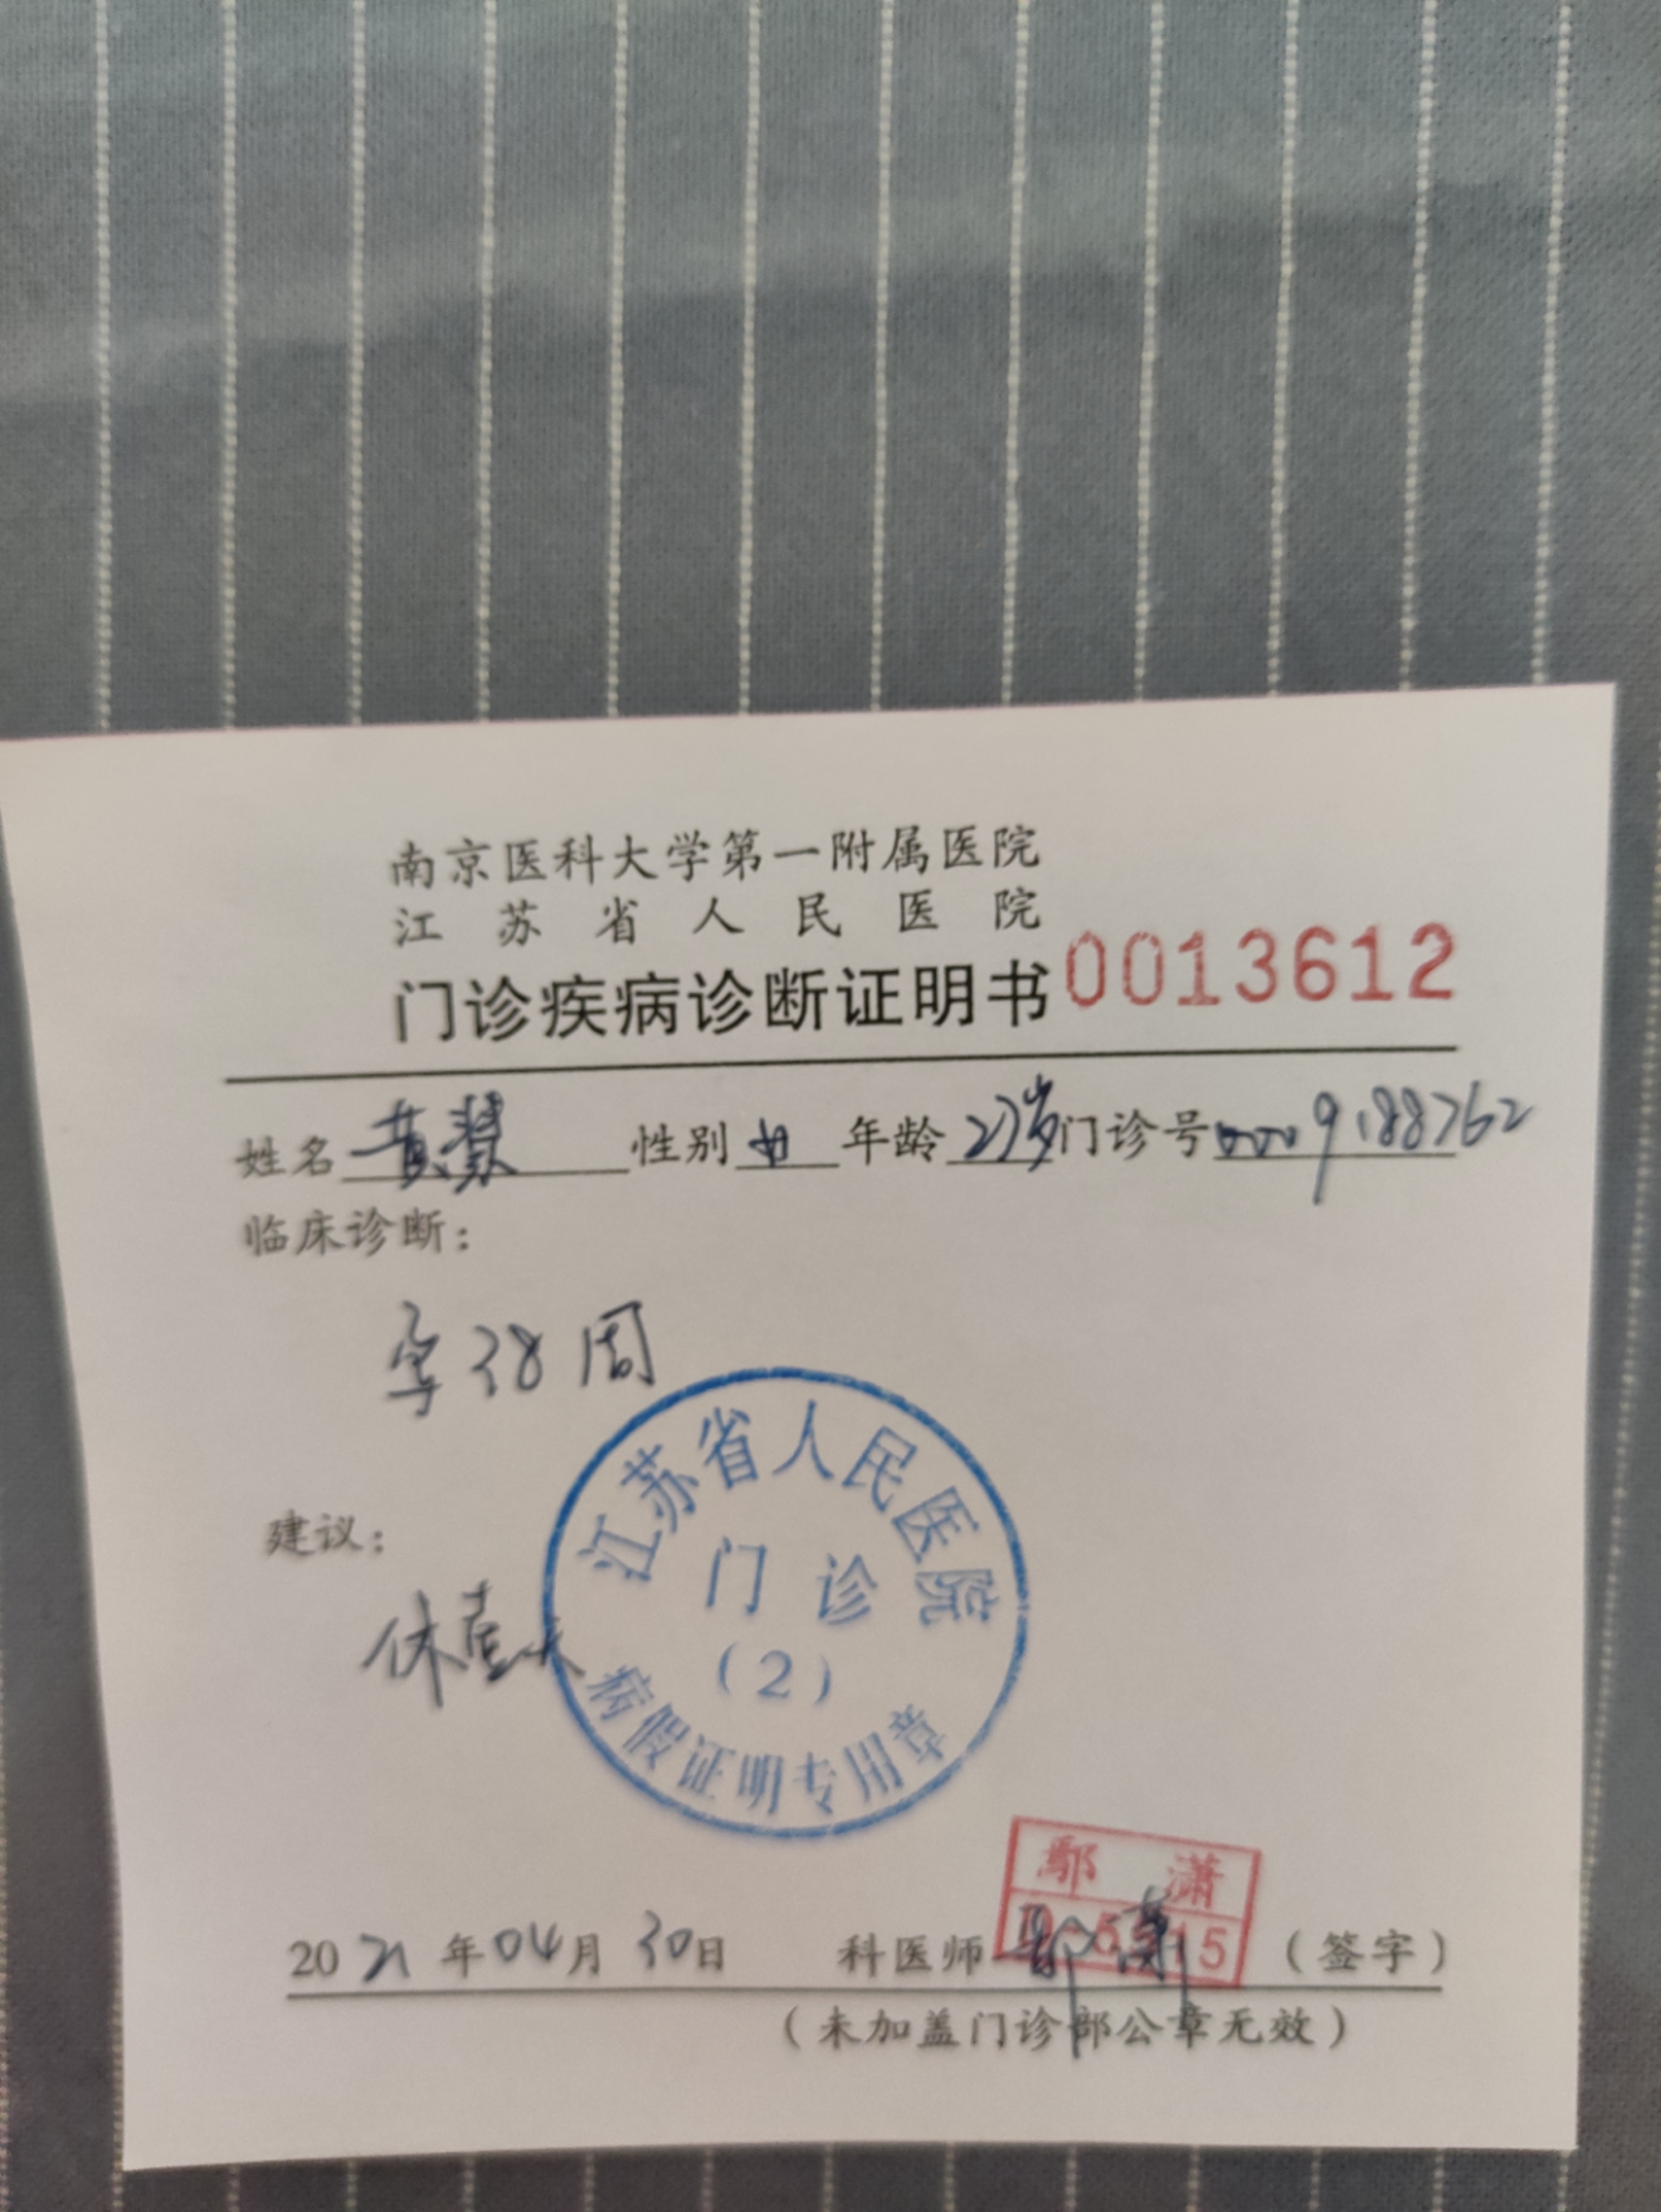 南京医科大学第一附属医院
江苏省人民医院
门诊疾病诊断证明书 0013612
姓名 黄慧 性别 女 年龄 27岁 门诊号 0009188762
临床诊断：
孕38周
江苏省人民医院
门诊
（2）
病假证明专用章
建议：
休壹天
鄢 潇
2021年04月30日 科医师 鄢潇 （签字）
（未加盖门诊部公章无效）